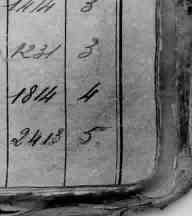 1414 3
1231 3
1814 4
2413 5